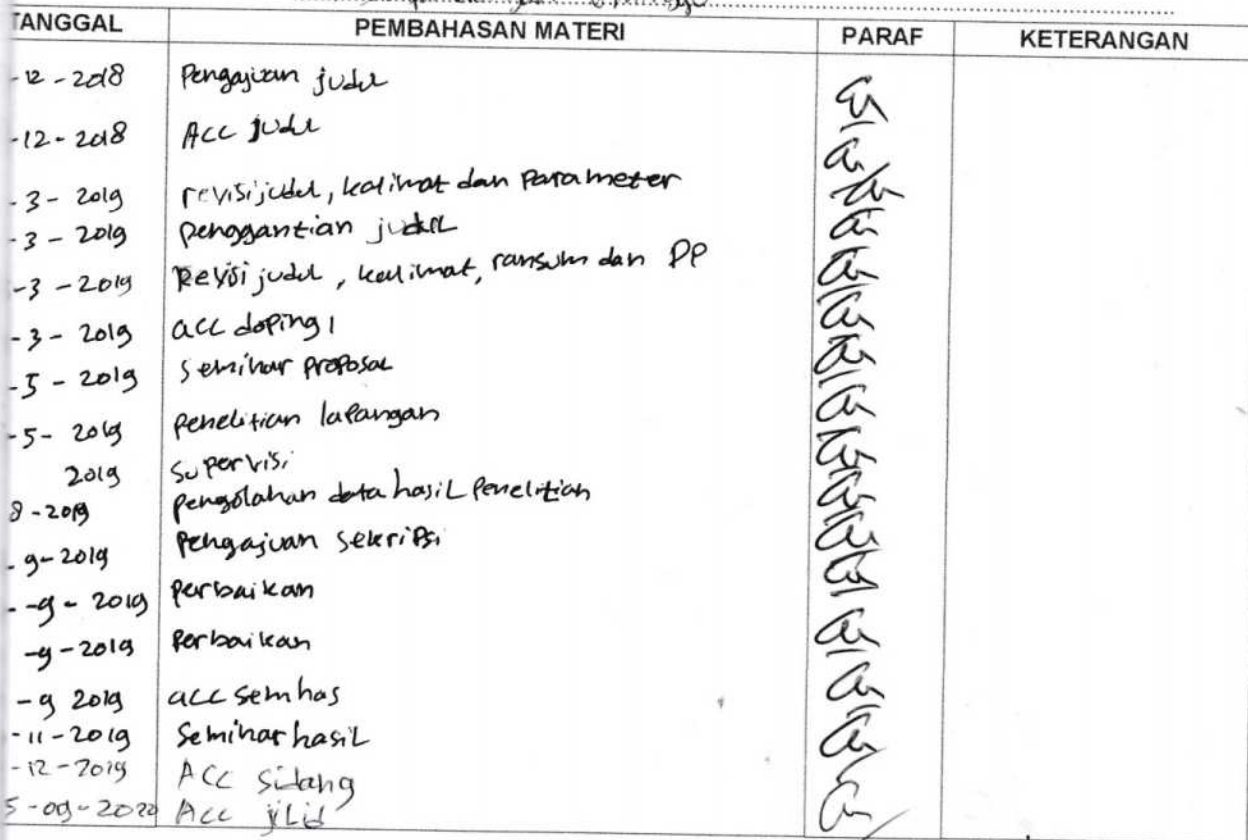 TANGGAL PEMBAHASAN MATERI PARAF KETERANGAN
-12-2018 Pengajuan judul
-12-2018 ACC judul
-3-2019 revisi judul, kalimat dan Parameter
-3-2019 penggantian judul
-3-2019 Revisi judul, kalimat, ransum dan DP
-3-2019 acc doping 1
-5-2019 seminar proposal
-5-2019 penelitian lapangan
2019 Supervisi
8-2019 pengolahan data hasil penelitian
-9-2019 Pengajuan sekripsi
-9-2019 perbaikan
-9-2019 Perbaikan
-9 2019 acc semhas
-11-2019 Seminar hasil
-12-2019 ACC sidang
5-09-2020 Acc jilid